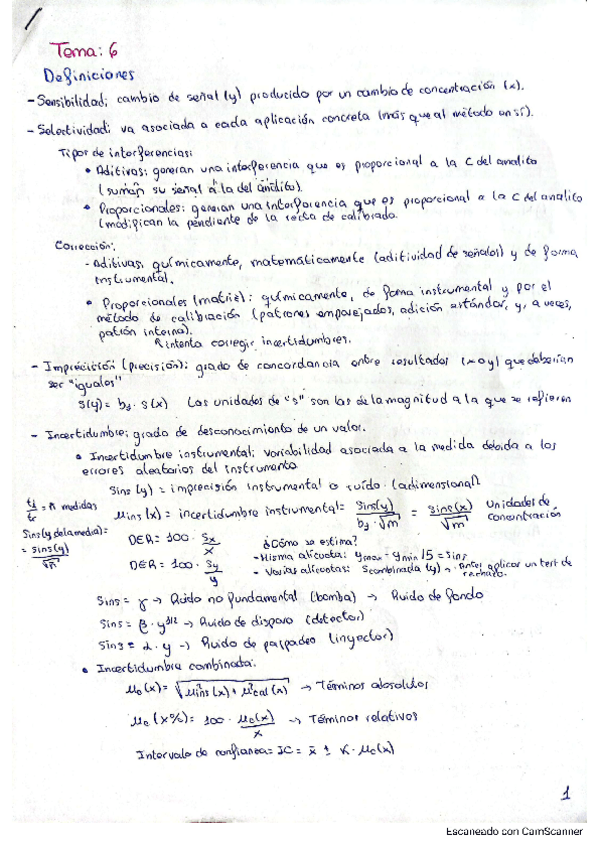 Tema: 6
Definiciones
- Sensibilidad: cambio de señal (y) producido por un cambio de concentración (x).
- Selectividad: va asociada a cada aplicación concreta (más que al método en sí).
Tipos de interferencias:
• Aditivas: generan una interferencia que es proporcional a la C del analito
(suman su señal a la del analito).
• Proporcionales: generan una interferencia que es proporcional a la C del analito
(modifican la pendiente de la recta de calibrado.
Corrección:
- Aditivas: químicamente, matemáticamente (aditividad de señales) y de forma
instrumental.
• Proporcionales (matriz): químicamente, de forma instrumental y por el
método de calibración (patrones emparejados, adición estándar, y, a veces,
patrón interno).
intenta corregir incertidumbres.
- Imprecisión (precisión): grado de concordancia entre resultados (x o y) que deberían
ser "iguales"
s(y) = b₁ · s(x) Las unidades de "s" son las de la magnitud a la que se refieren
- Incertidumbre: grado de desconocimiento de un valor.
• Incertidumbre instrumental: variabilidad asociada a la medida debida a los
errores aleatorios del instrumento
sins (y) = imprecisión instrumental o ruido (adimensional)
ti/tr = n medidas
μins (x) = incertidumbre instrumental = sins(y)/b₁·√m = sins(x)/√m unidades de concentración
sins (y de la media) = sins(y)/√n
DER = 100 · sx/x
DER = 100 · sy/y
¿Cómo se estima?
- Misma alícuota: ymax - ymin /5 = sins
- Varias alícuotas: scombinada (y) → Antes aplicar un test de rechazo.
sins = γ → Ruido no fundamental (bomba) → Ruido de fondo
sins = β · y^1/2 → Ruido de disparo (detector)
sins = α · y → Ruido de parpadeo (inyector)
• Incertidumbre combinada:
μc (x) = √μ²ins (x) + μ²cal (x) → Términos absolutos
μc (x%) = 100 · μc(x)/x → Términos relativos
Intervalo de confianza = IC = x̄ ± K · μc(x)
1
Escaneado con CamScanner